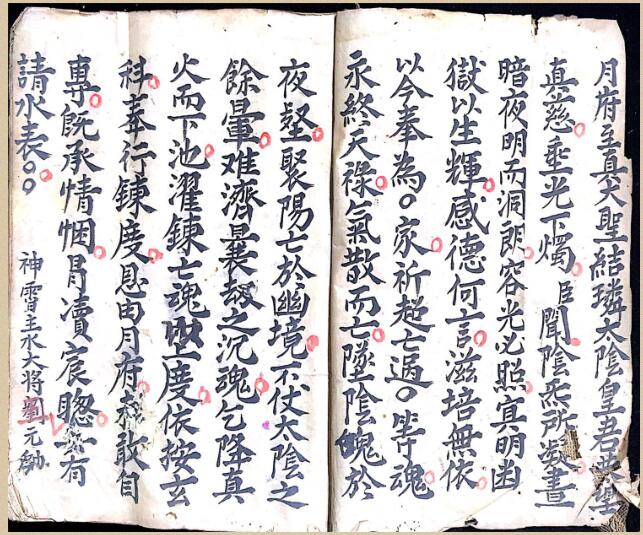 月府至真大聖結璘太陰皇君望
真慈垂光下燭 臣聞陰炁所凝晝
暗夜明而洞朗容光必照冥明幽
獄以生輝感德何言滋培無依
以今奉為〇家祈超亡過〇等魂
永終天祿氣散而亡墜陰魄於
夜壑聚陽亡於幽境不仗太陰之
餘暈难濟曩劫之沉魂乞降真
火而下池濯鍊亡魂上度依按玄
科奉行鍊度息由月府敢自
專既承情悃冐瀆宸聰有
請水表〇〇
神霄主水大將劉元帥